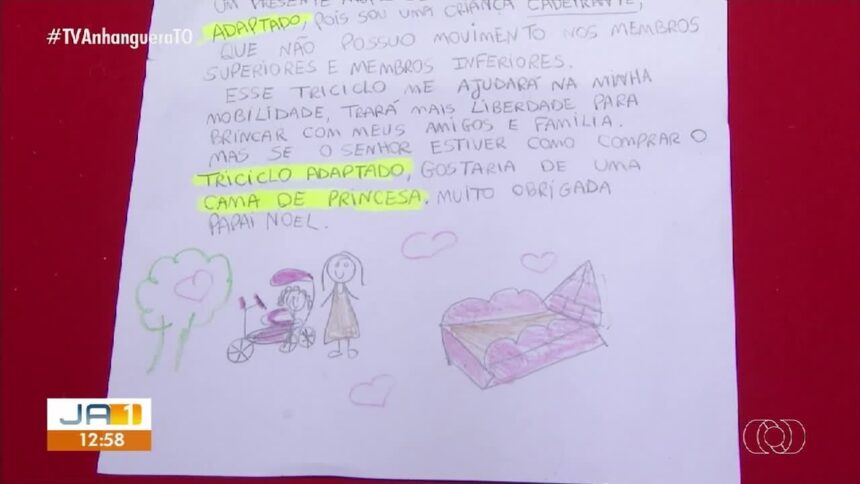 UM PRESENTE
#TVAnhangueraTO
ADAPTADO, POIS SOU UMA CRIANÇA CADEIRANTE,
QUE NÃO POSSUO MOVIMENTO NOS MEMBROS
SUPERIORES E MEMBROS INFERIORES.
ESSE TRICICLO ME AJUDARÁ NA MINHA
MOBILIDADE, TRARÁ MAIS LIBERDADE PARA
BRINCAR COM MEUS AMIGOS E FAMÍLIA.
MAS SE O SENHOR ESTIVER COMO COMPRAR O
TRICICLO ADAPTADO, GOSTARIA DE UMA
CAMA DE PRINCESA. MUITO OBRIGADA
PAPAI NOEL.
JA1
12:58